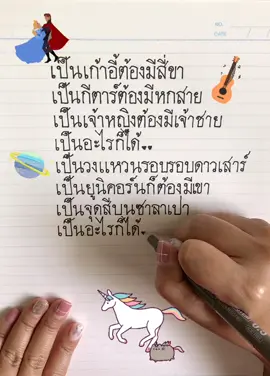 เป็นเก้าอี้ต้องมีสี่ขา
เป็นกีตาร์ต้องมีหกสาย
เป็นเจ้าหญิงต้องมีเจ้าชาย
เป็นอะไรก็ได้..
เป็นวงแหวนรอบรอบดาวเสาร์
เป็นยูนิคอร์นก็ต้องมีเขา
เป็นจุดสีบนซาลาเปา
เป็นอะไรก็ได้.